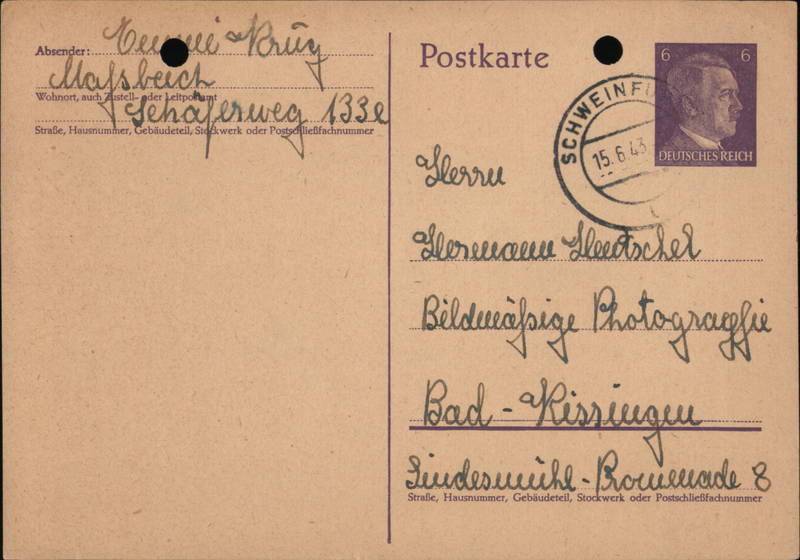 Absender: Emmi Krug
Maßbach
Wohnort, auch Zustell- oder Leitpostamt
Schäferweg 133e
Straße, Hausnummer, Gebäudeteil, Stockwerk oder Postschließfachnummer
Postkarte
6 6
DEUTSCHES REICH
SCHWEINFU
15.6.43
Herrn
Hermann Hentschel
Bildmäßige Photographie
Bad-Kissingen
Lindesmühl-Promenade 8
Straße, Hausnummer, Gebäudeteil, Stockwerk oder Postschließfachnummer